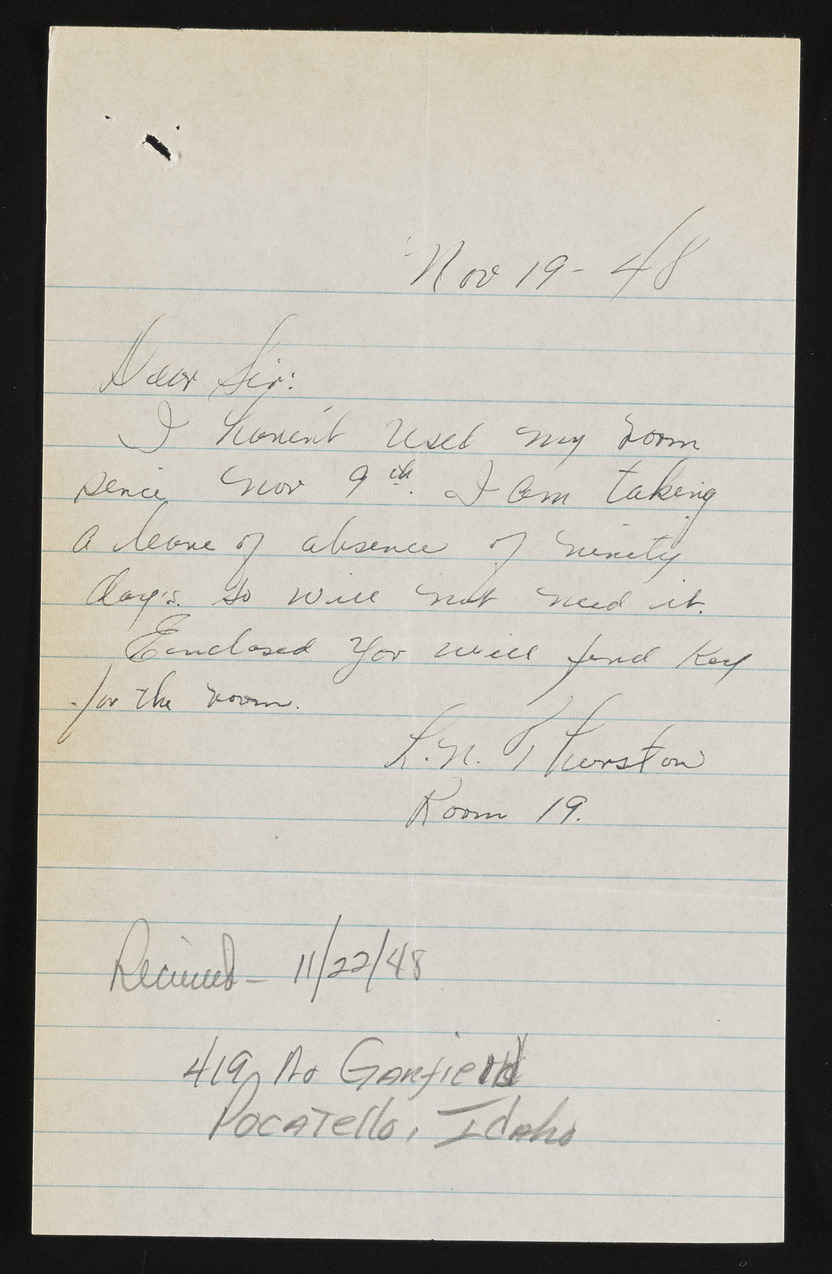 Nov 19 - 48
Dear Sir:
I haven't used my room
sence Nov 9th. I am taking
a leave of absence of ninety
day's. So will not need it.
Eenclosed you will find Key
for the room.
L. N. Thurston
Room 19.
Recieved - 11/22/48
419 No Garfield
Pocatello, Idaho